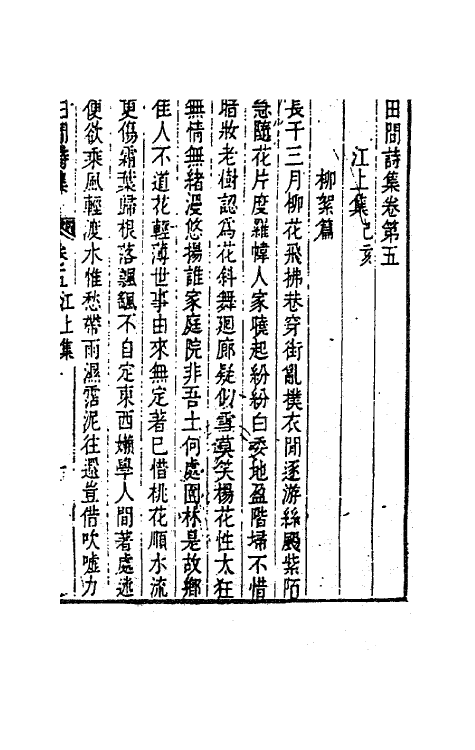 田間詩集卷第五
江上集己亥
柳絮篇
長干三月柳花飛拂巷穿街亂撲衣閒逐游絲颺紫陌
急隨花片度羅幃人家曉起紛紛白委地盈階埽不惜
暗妝老樹認爲花斜舞廻廊疑似雪莫笑楊花性太狂
無情無緒漫悠揚誰家庭院非吾土何處園林是故鄉
佳人不道花輕薄世事由來無定著已借桃花順水流
更傷霜葉歸根落飄飄不自定東西嬾學人間著處迷
便欲乘風輕渡水惟愁帶雨濕霑泥往還豈借吹噓力
田間詩集 卷五江上集 一